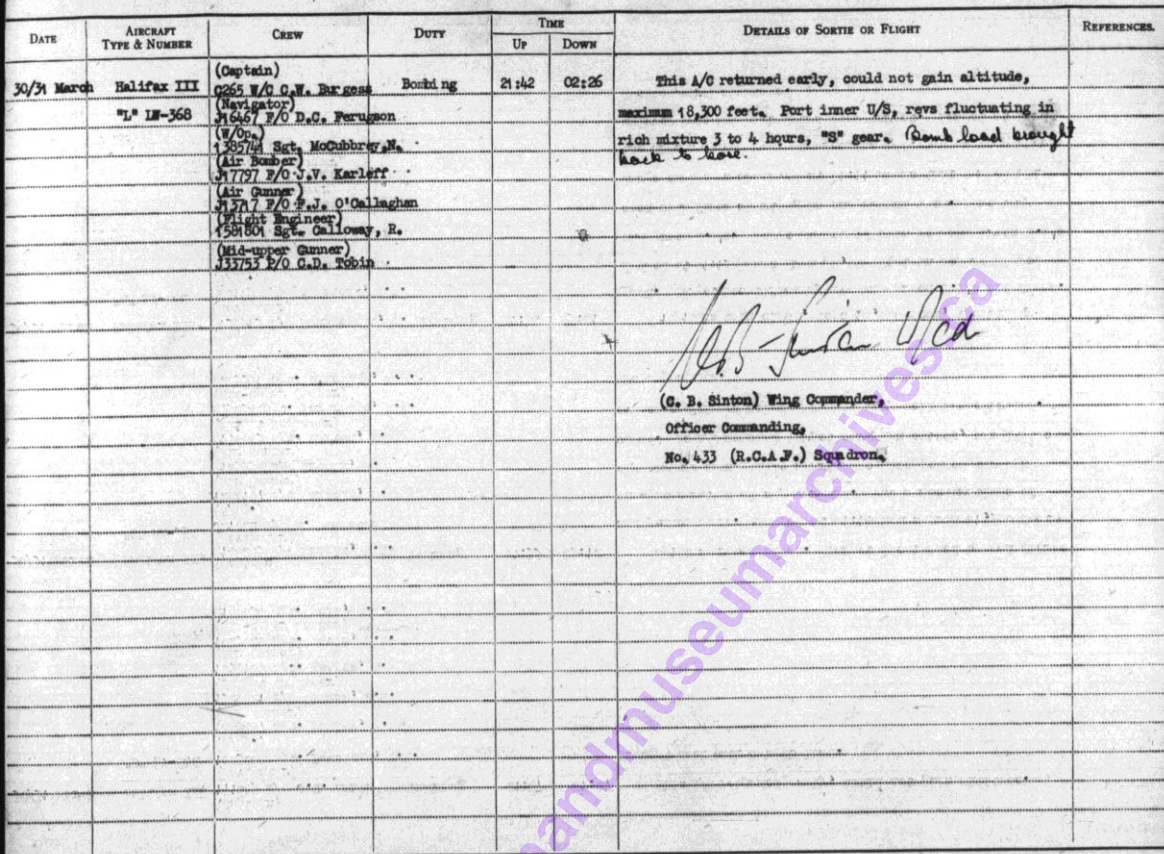 DATE
AIRCRAFT
TYPE & NUMBER
CREW
DUTY
TIME
UP
DOWN
DETAILS OF SORTIE OR FLIGHT
REFERENCES.
30/31 March
Halifax III
"L" LW-368
(Captain)
C265 W/C C.W. Burgess
(Navigator)
J16467 F/O D.C. Ferugson
(W/Op.)
1385741 Sgt. McCubbrey,N.
(Air Bomber)
J17797 F/O J.V. Karleff
(Air Gunner)
J13717 F/O F.J. O'Callaghan
(Flight Engineer)
1581801 Sgt. Calloway, R.
(Mid-upper Gunner)
J33753 P/O C.D. Tobin
Bombing
21:42
02:26
This A/C returned early, could not gain altitude,
maximum 18,300 feet. Port inner U/S, revs fluctuating in
rich mixture 3 to 4 hours, "S" gear. Bomb load brought
back to base.
(C. B. Sinton) Wing Commander,
Officer Commanding,
No. 433 (R.C.A.F.) Squadron.
andmuseumarchives.ca